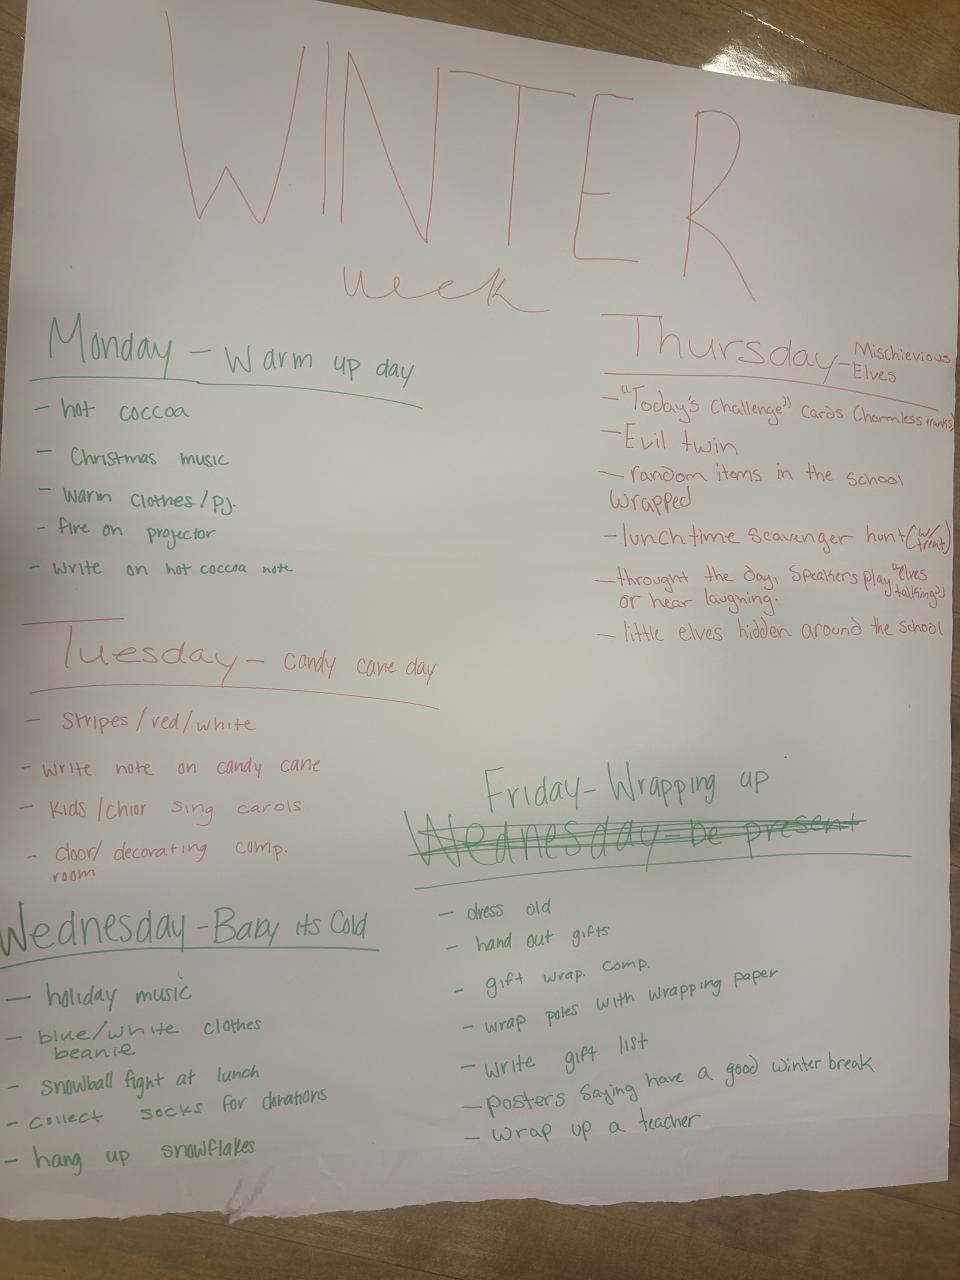 WINTER
week
Monday - Warm up day
- hot coccoa
- Christmas music
- Warm clothes/PJ.
- fire on projector
- Write on hot coccoa note
Tuesday - candy cane day
- Stripes/red/white
- Write note on candy cane
- Kids/chior sing carols
- door/decorating comp.
room
Wednesday - Baby its Cold
- holiday music
- blue/white clothes
beanie
- snowball fight at lunch
- collect socks for donations
- hang up snowflakes
Thursday - Mischievious
Elves
- "Today's Challenge" cards (harmless pranks)
- Evil twin
- random items in the school
wrapped
- lunchtime scavenger hunt (w/ treat)
- throught the day, speakers play "elves talking"
or hear laughing.
- little elves hidden around the school
Friday - Wrapping up
Wednesday - be present
- dress old
- hand out gifts
- gift wrap. comp.
- wrap poles with wrapping paper
- write gift list
- posters saying have a good winter break
- wrap up a teacher